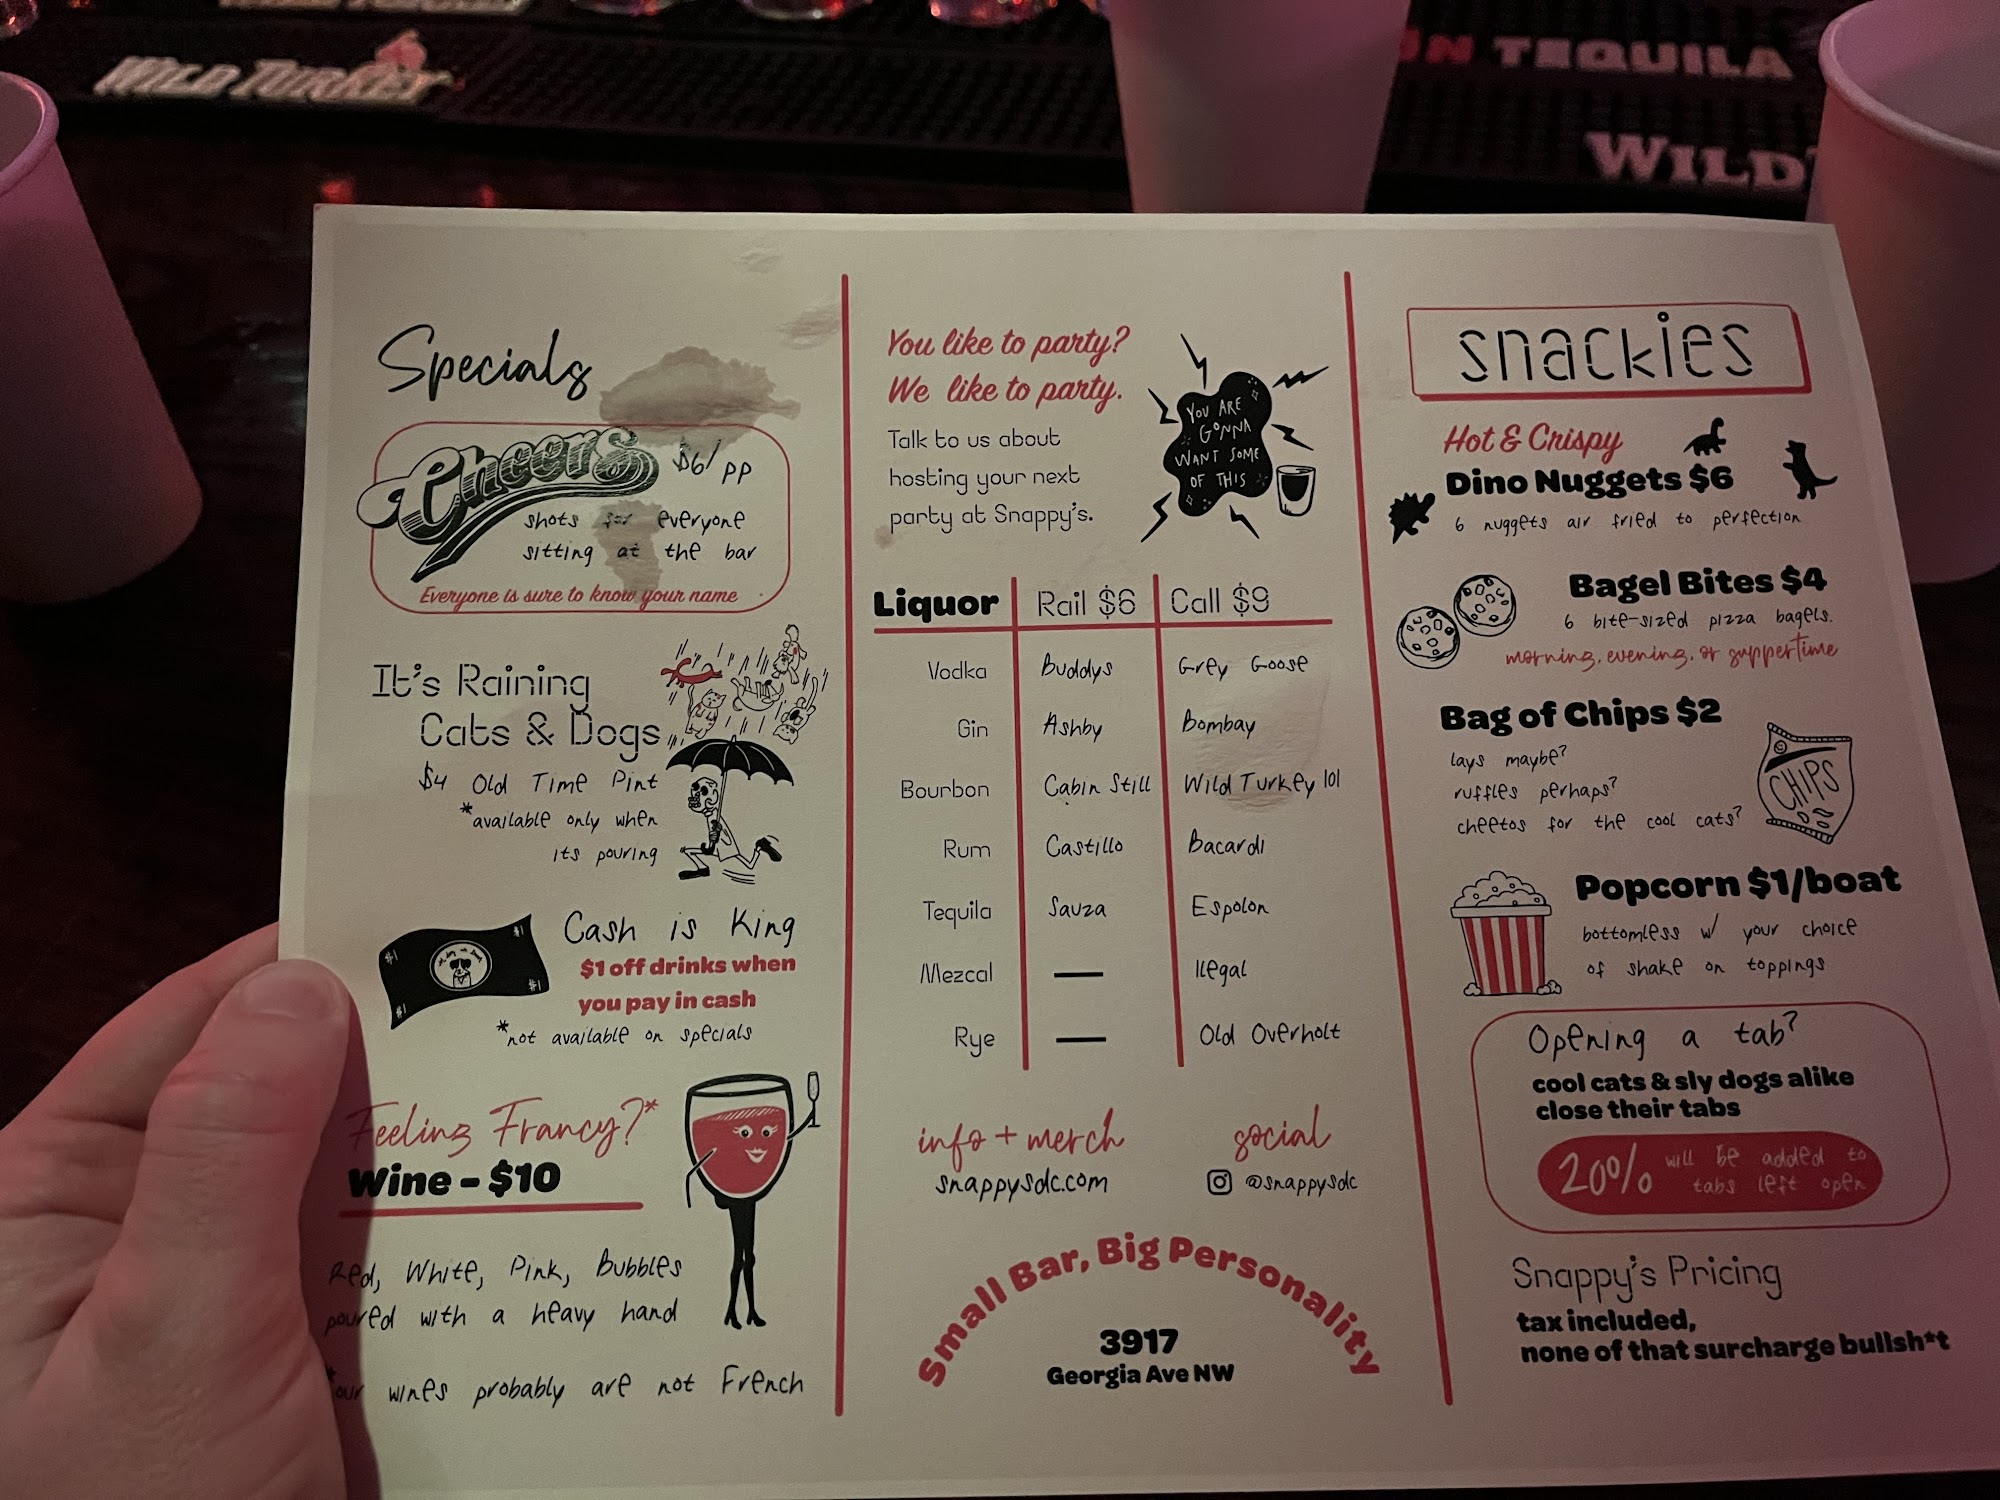 WILD TURKEY
TEQUILA
WILD
Specials
Cheers $6/pp
shots for everyone
sitting at the bar
Everyone is sure to know your name
It's Raining
Cats & Dogs
$4 Old Time Pint
*available only when
its pouring
#1 #1
#1 #1
Cash is King
$1 off drinks when
you pay in cash
*not available on specials
Feeling Francy?*
Wine - $10
Red, White, Pink, Bubbles
poured with a heavy hand
*our wines probably are not French
You like to party?
We like to party.
Talk to us about
hosting your next
party at Snappy's.
YOU ARE
GONNA
WANT SOME
OF THIS
Liquor Rail $6 Call $9
Vodka Buddys Grey Goose
Gin Ashby Bombay
Bourbon Cabin Still Wild Turkey 101
Rum Castillo Bacardi
Tequila Sauza Espolon
Mezcal — Ilegal
Rye — Old Overholt
info + merch
snappysdc.com
social
@snappysdc
Small Bar, Big Personality
3917
Georgia Ave NW
snackies
Hot & Crispy
Dino Nuggets $6
6 nuggets air fried to perfection
Bagel Bites $4
6 bite-sized pizza bagels.
morning, evening, or suppertime
Bag of Chips $2
lays maybe?
ruffles perhaps?
cheetos for the cool cats?
CHIPS
Popcorn $1/boat
bottomless w/ your choice
of shake on toppings
Opening a tab?
cool cats & sly dogs alike
close their tabs
20% will be added to
tabs left open
Snappy's Pricing
tax included,
none of that surcharge bullsh*t